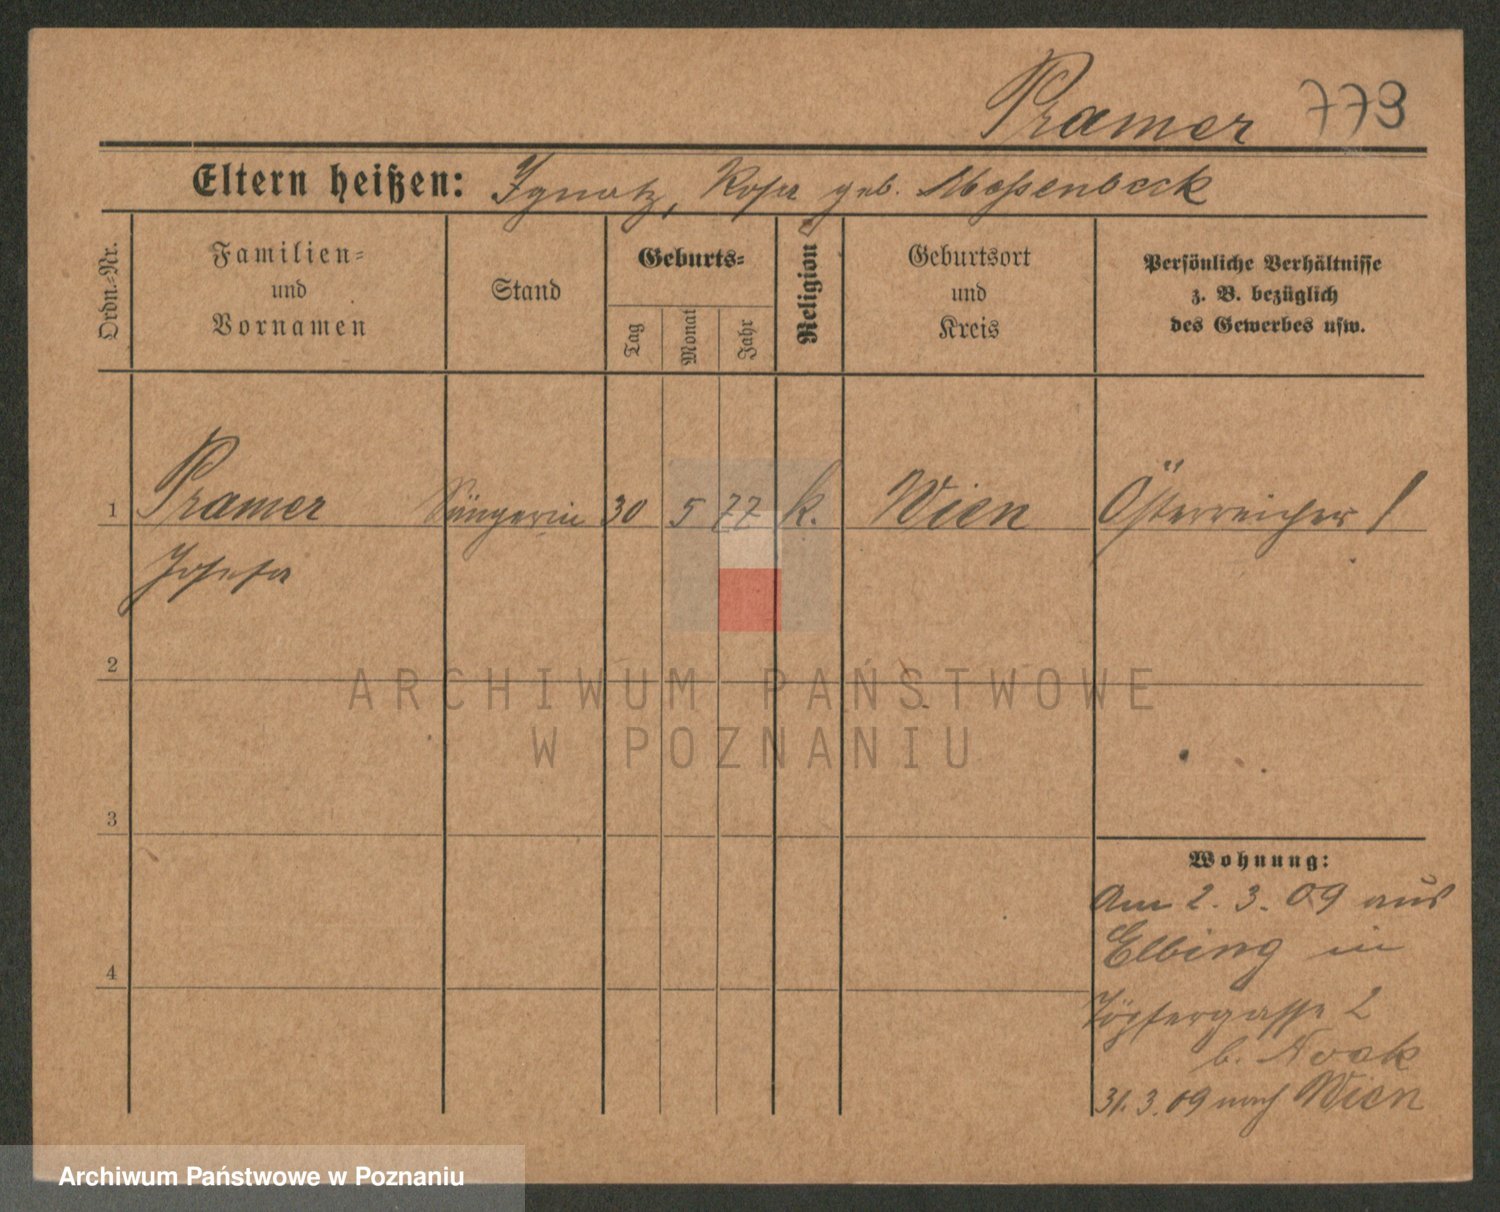 Pramer 773
Eltern heißen: Ignatz, Rosa geb.
Ordn.-Nr.
Familien-
und
Vornamen
Stand
Geburts-
Tag
Monat
Jahr
Religion
Geburtsort
und
Kreis
Persönliche Verhältnisse
z. B. bezüglich
des Gewerbes usw.
1 Pramer Sängerin 30 5 77 k. Wien Österreicher
Josefa
2
ARCHIWUM PAŃSTWOWE
W POZNANIU
3
Wohnung:
Am 2. 3. 09 aus
Elbing in
4
Töpfergasse 2
b. Noak
31. 3. 09 nach Wien
Archiwum Państwowe w Poznaniu